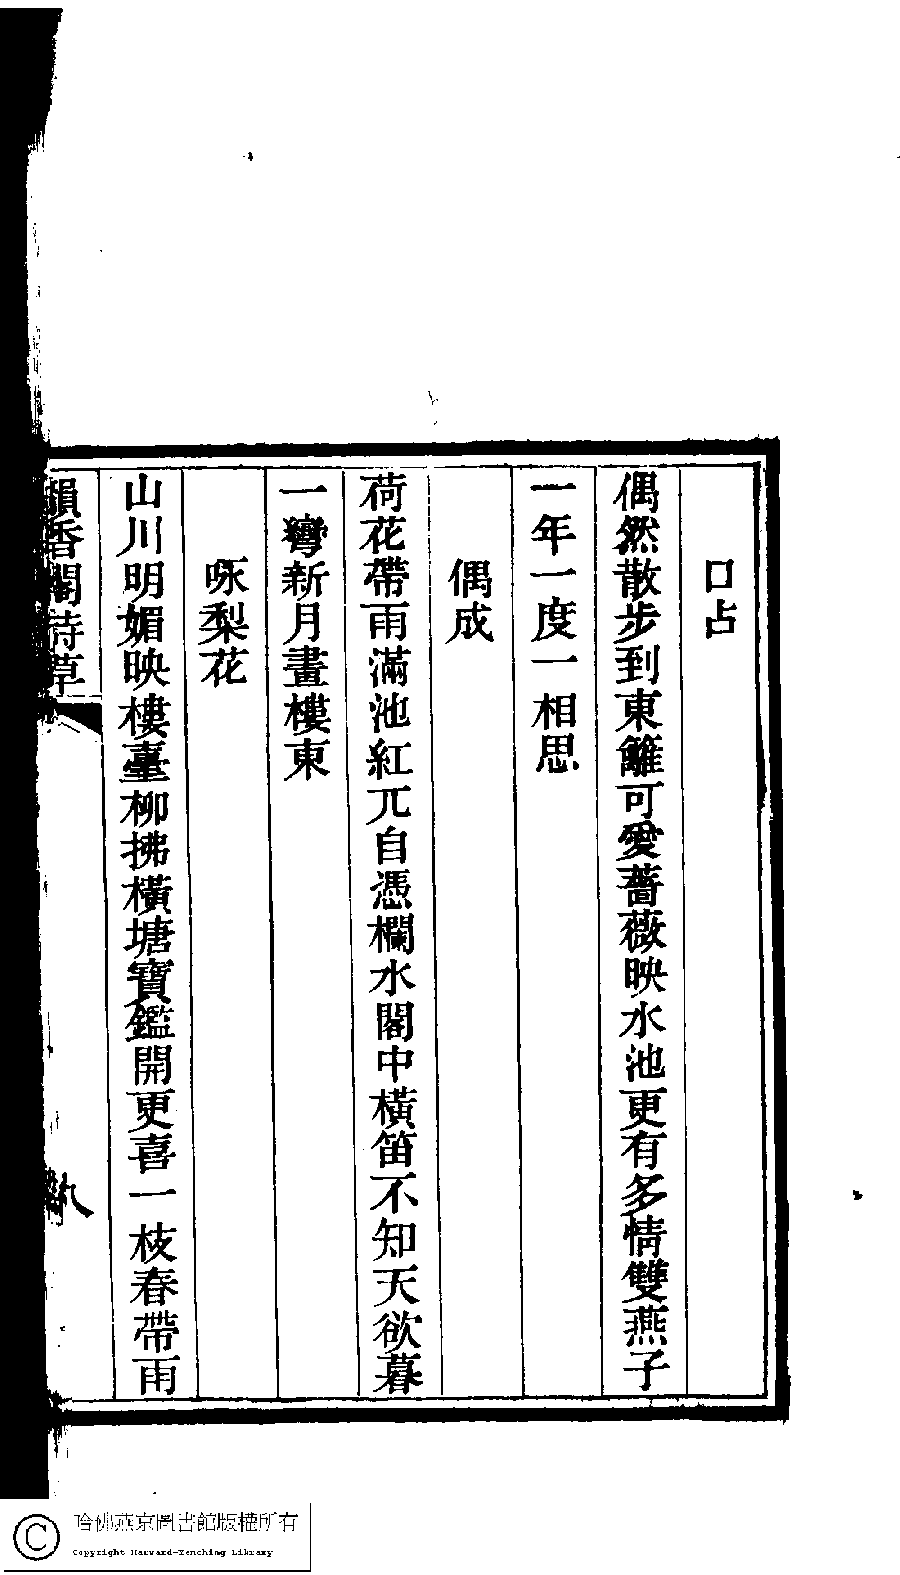 口占
偶然散步到東籬可愛薔薇映水池更有多情雙燕子
一年一度一相思
偶成
荷花帶雨滿池紅兀自憑欄水閣中橫笛不知天欲暮
一彎新月畫樓東
咏梨花
山川明媚映樓臺柳拂橫塘寶鑑開更喜一枝春帶雨
韻香閣詩草
九
哈佛燕京圖書館版權所有
Copyright Harvard-Yenching Library